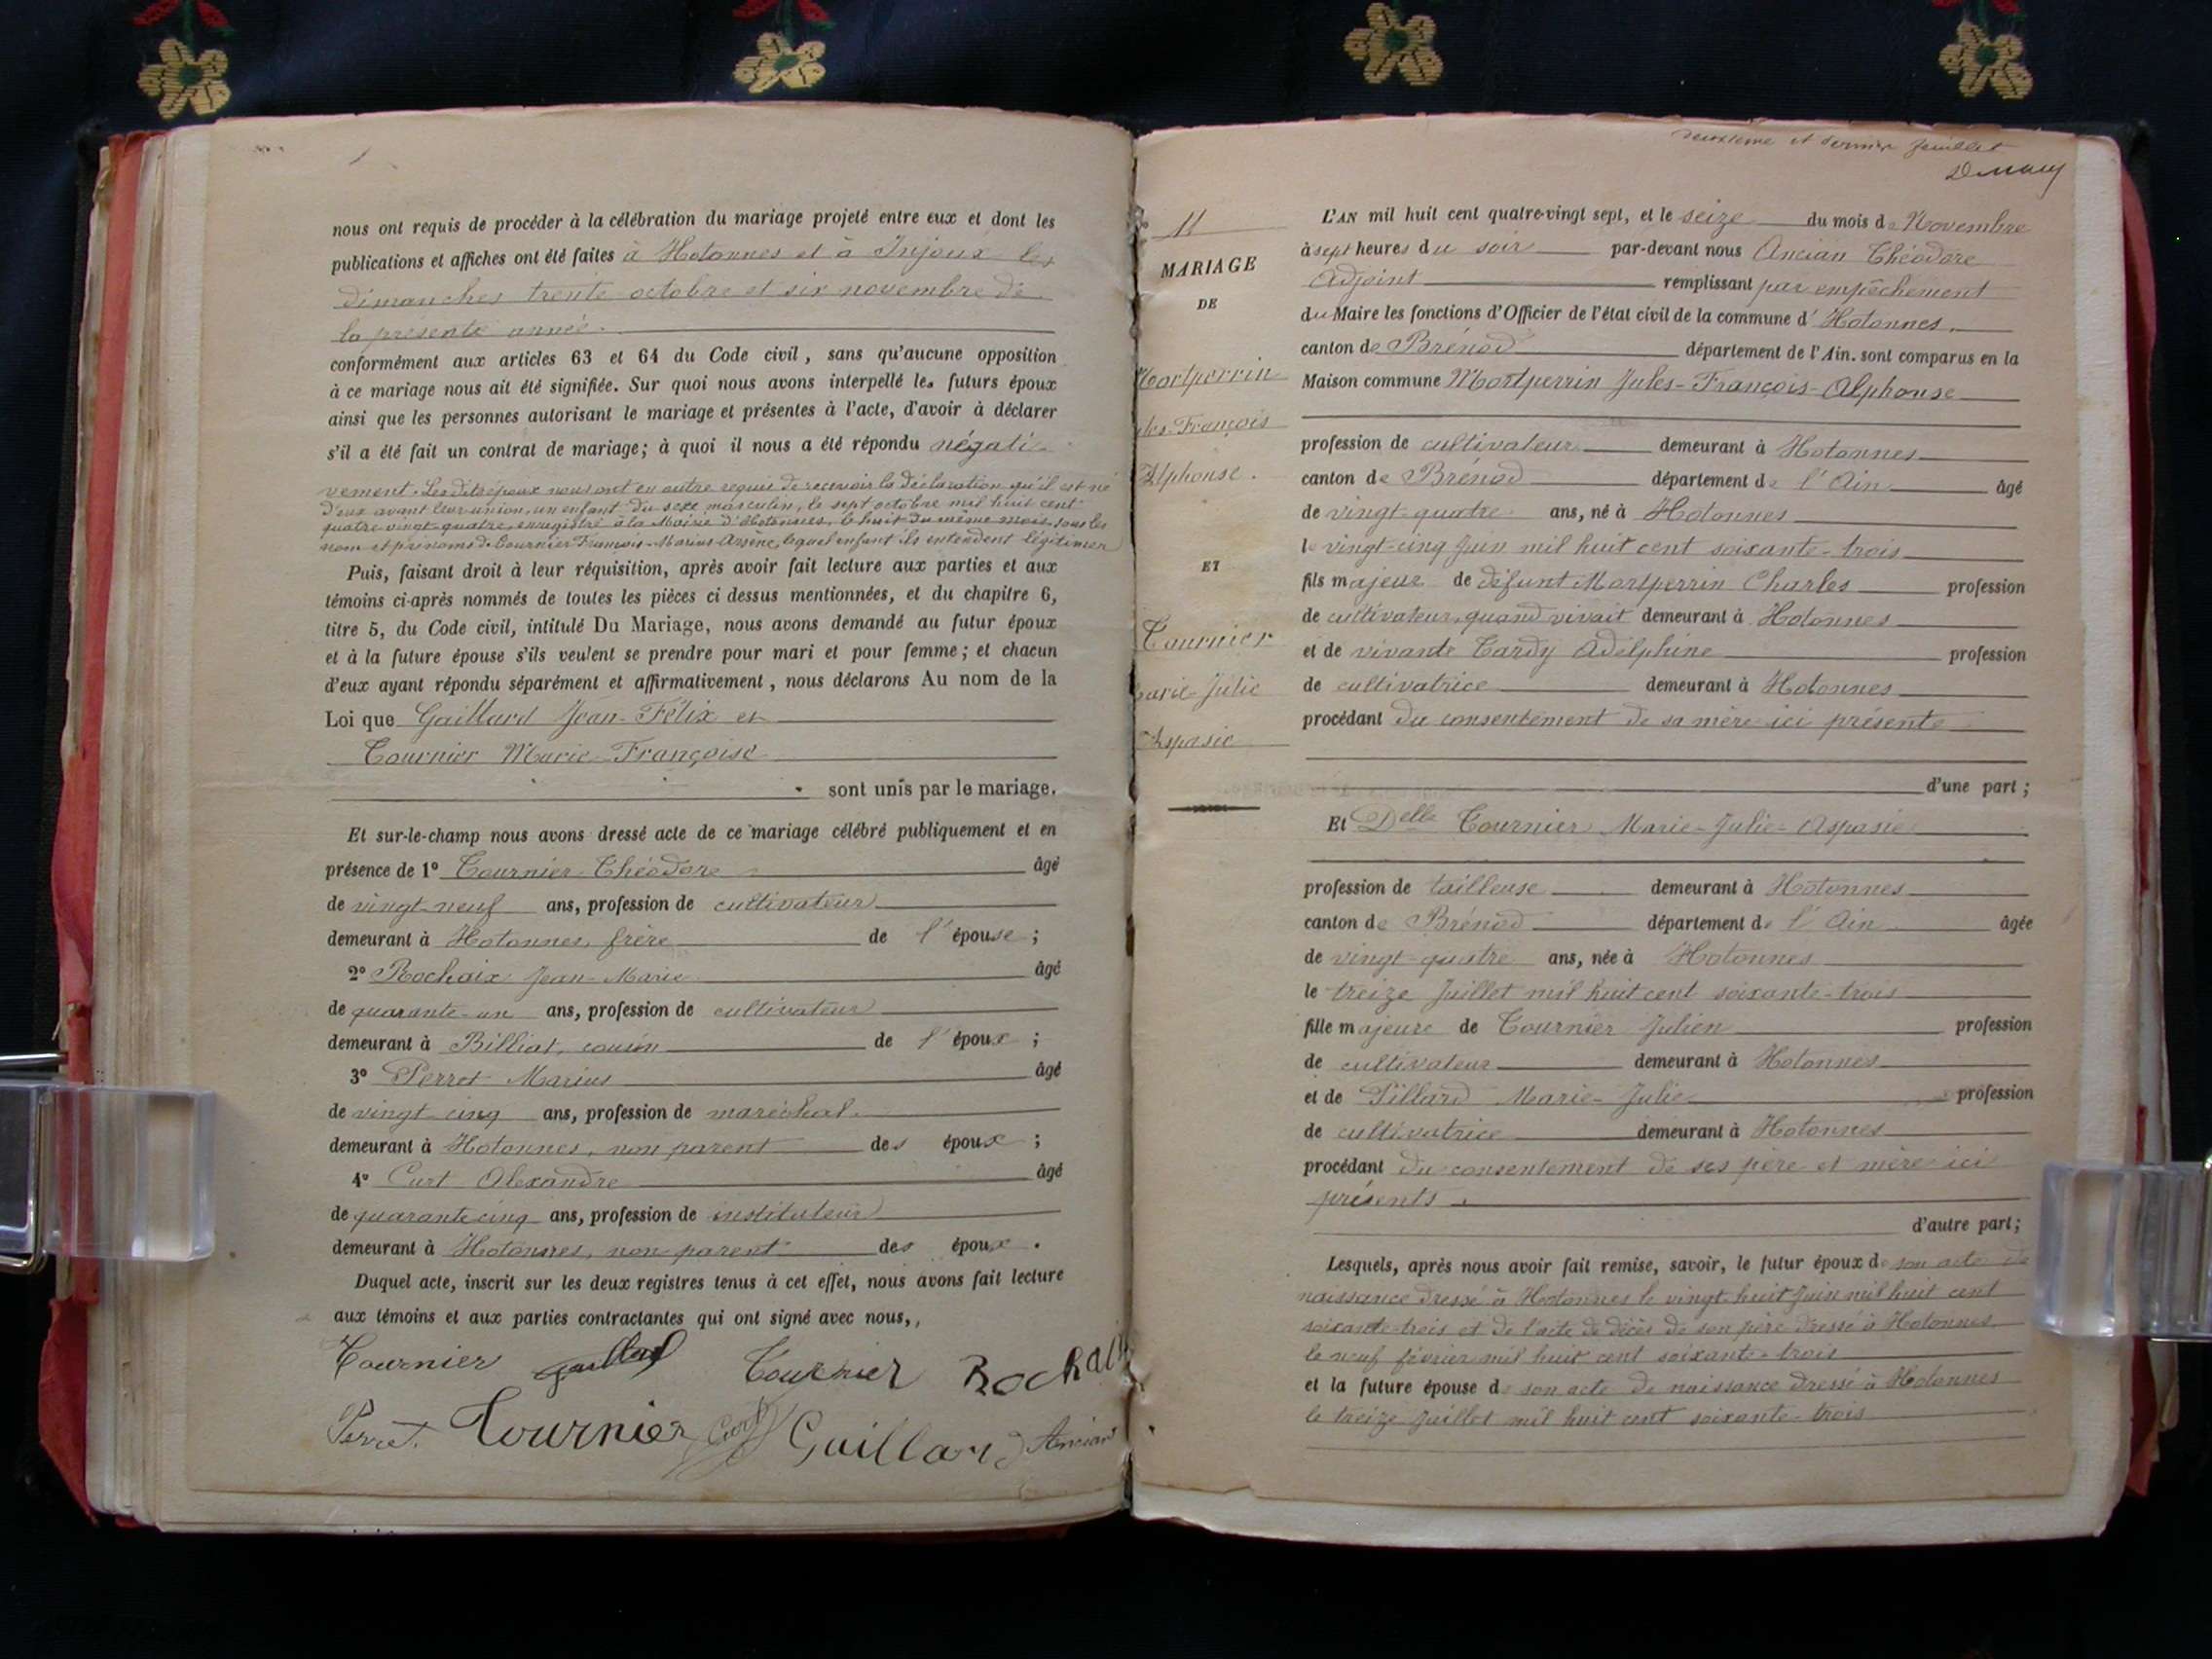 nous ont requis de procéder à la célébration du mariage projeté entre eux et dont les
publications et affiches ont été faites à Hotonnes et à Injoux les
dimanches trente octobre et six novembre de
la présente année.
conformément aux articles 63 et 64 du Code civil, sans qu'aucune opposition
à ce mariage nous ait été signifiée. Sur quoi nous avons interpellé les futurs époux
ainsi que les personnes autorisant le mariage et présentes à l'acte, d'avoir à déclarer
s'il a été fait un contrat de mariage; à quoi il nous a été répondu négati-
vement. Les dits époux nous ont en outre requis de recevoir la déclaration qu'il est né
d'eux avant leur union, un enfant du sexe masculin, le sept octobre mil huit cent
quatre-vingt-quatre, enregistré à la Mairie d'Hotonnes, le huit du même mois, sous les
nom et prénoms de Tournier François-Marius-Arsène, lequel enfant ils entendent légitimer
Puis, faisant droit à leur réquisition, après avoir fait lecture aux parties et aux
témoins ci-après nommés de toutes les pièces ci dessus mentionnées, et du chapitre 6,
titre 5, du Code civil, intitulé Du Mariage, nous avons demandé au futur époux
et à la future épouse s'ils veulent se prendre pour mari et pour femme; et chacun
d'eux ayant répondu séparément et affirmativement, nous déclarons Au nom de la
Loi que Gaillard Jean-Félix et
Tournier Marie-Françoise
sont unis par le mariage.
Et sur-le-champ nous avons dressé acte de ce mariage célébré publiquement et en
présence de 1° Tournier Théodore âgé
de vingt-neuf ans, profession de cultivateur
demeurant à Hotonnes, frère de l'épouse;
2° Rochaix Jean-Marie âgé
de quarante-un ans, profession de cultivateur
demeurant à Billiat, cousin de l'époux;
3° Perret Marius âgé
de vingt-cinq ans, profession de maréchal.
demeurant à Hotonnes, non parent des époux;
4° Curt Alexandre âgé
de quarante-cinq ans, profession de instituteur
demeurant à Hotonnes, non parent des époux.
Duquel acte, inscrit sur les deux registres tenus à cet effet, nous avons fait lecture
aux témoins et aux parties contractantes qui ont signé avec nous,,
Tournier Gaillard Tournier Rochaix
Perret. Tournier Curt Gaillard Ancian
deuxième et dernier feuillet
11
MARIAGE
DE
Mortperrin
Jules-François
Alphonse.
ET
Tournier
Marie-Julie
Aspasie
L'AN mil huit cent quatre-vingt sept, et le seize du mois de Novembre
à sept heures du soir par-devant nous Ancian Théodore
Adjoint remplissant par empêchement
du Maire les fonctions d'Officier de l'état civil de la commune d'Hotonnes,
canton de Brénod département de l'Ain. sont comparus en la
Maison commune Mortperrin Jules-François-Alphonse
profession de cultivateur demeurant à Hotonnes
canton de Brénod département de l'Ain âgé
de vingt-quatre ans, né à Hotonnes
le vingt-cinq Juin mil huit cent soixante-trois
fils majeur de défunt Mortperrin Charles profession
de cultivateur, quand vivait demeurant à Hotonnes
et de vivante Tardy Adelphine profession
de cultivatrice demeurant à Hotonnes
procédant du consentement de sa mère ici présente
d'une part;
Et Delle Tournier Marie-Julie-Aspasie
profession de tailleuse demeurant à Hotonnes
canton de Brénod département de l'Ain âgée
de vingt-quatre ans, née à Hotonnes
le treize Juillet mil huit cent soixante-trois
fille majeure de Tournier Julien profession
de cultivateur demeurant à Hotonnes
et de Pillard Marie-Julie profession
de cultivatrice demeurant à Hotonnes
procédant du consentement de ses père et mère ici
présents.
d'autre part;
Lesquels, après nous avoir fait remise, savoir, le futur époux de son acte de
naissance dressé à Hotonnes le vingt-huit Juin mil huit cent
soixante-trois et de l'acte de décès de son père dressé à Hotonnes
le neuf février mil huit cent soixante-trois
et la future épouse de son acte de naissance dressé à Hotonnes
le treize Juillet mil huit cent soixante-trois